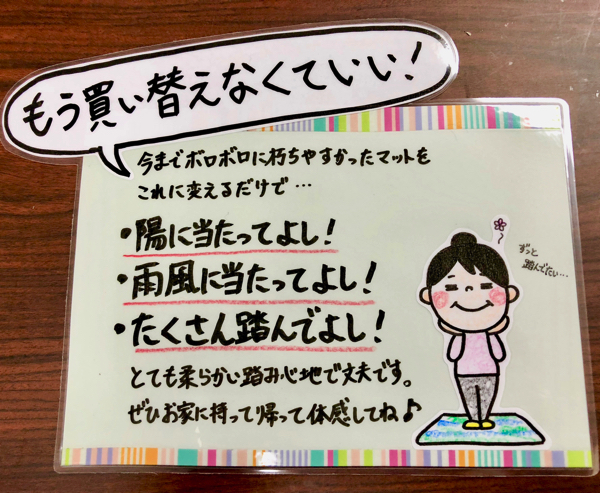 もう買い替えなくていい！
今までボロボロに朽ちやすかったマットを
これに変えるだけで…
・陽に当たってよし！
・雨風に当たってよし！
・たくさん踏んでよし！
とても柔らかい踏み心地で丈夫です。
ぜひお家に持って帰って体感してね♪
ずっと
踏んでたい…